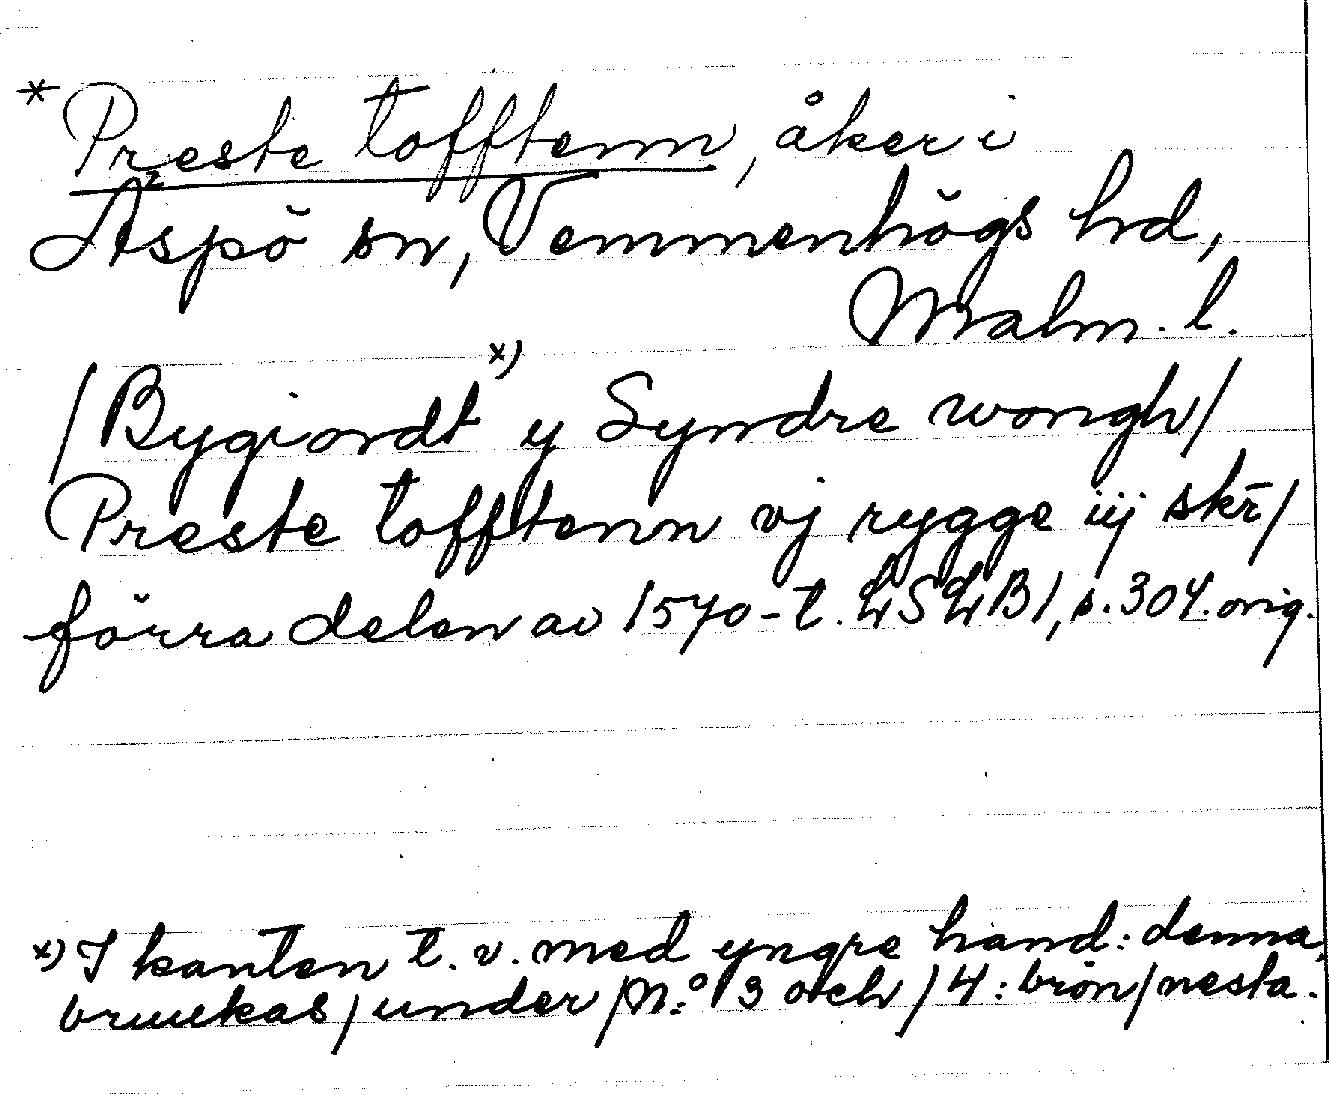 * Preste tofftenn, åker i
Aspö sn, Vemmenhögs hd,
Malm. l.
/Bygiordt x) y Syndre wongh/
Preste tofftenn vj rygge iij skr̄/
förra delen av 1570-t. LSLB1, s.304. orig.
x) I kanten t. v. med yngre hand: denna,
bruukas/under/N:o 3 och/4: brön/nesta.